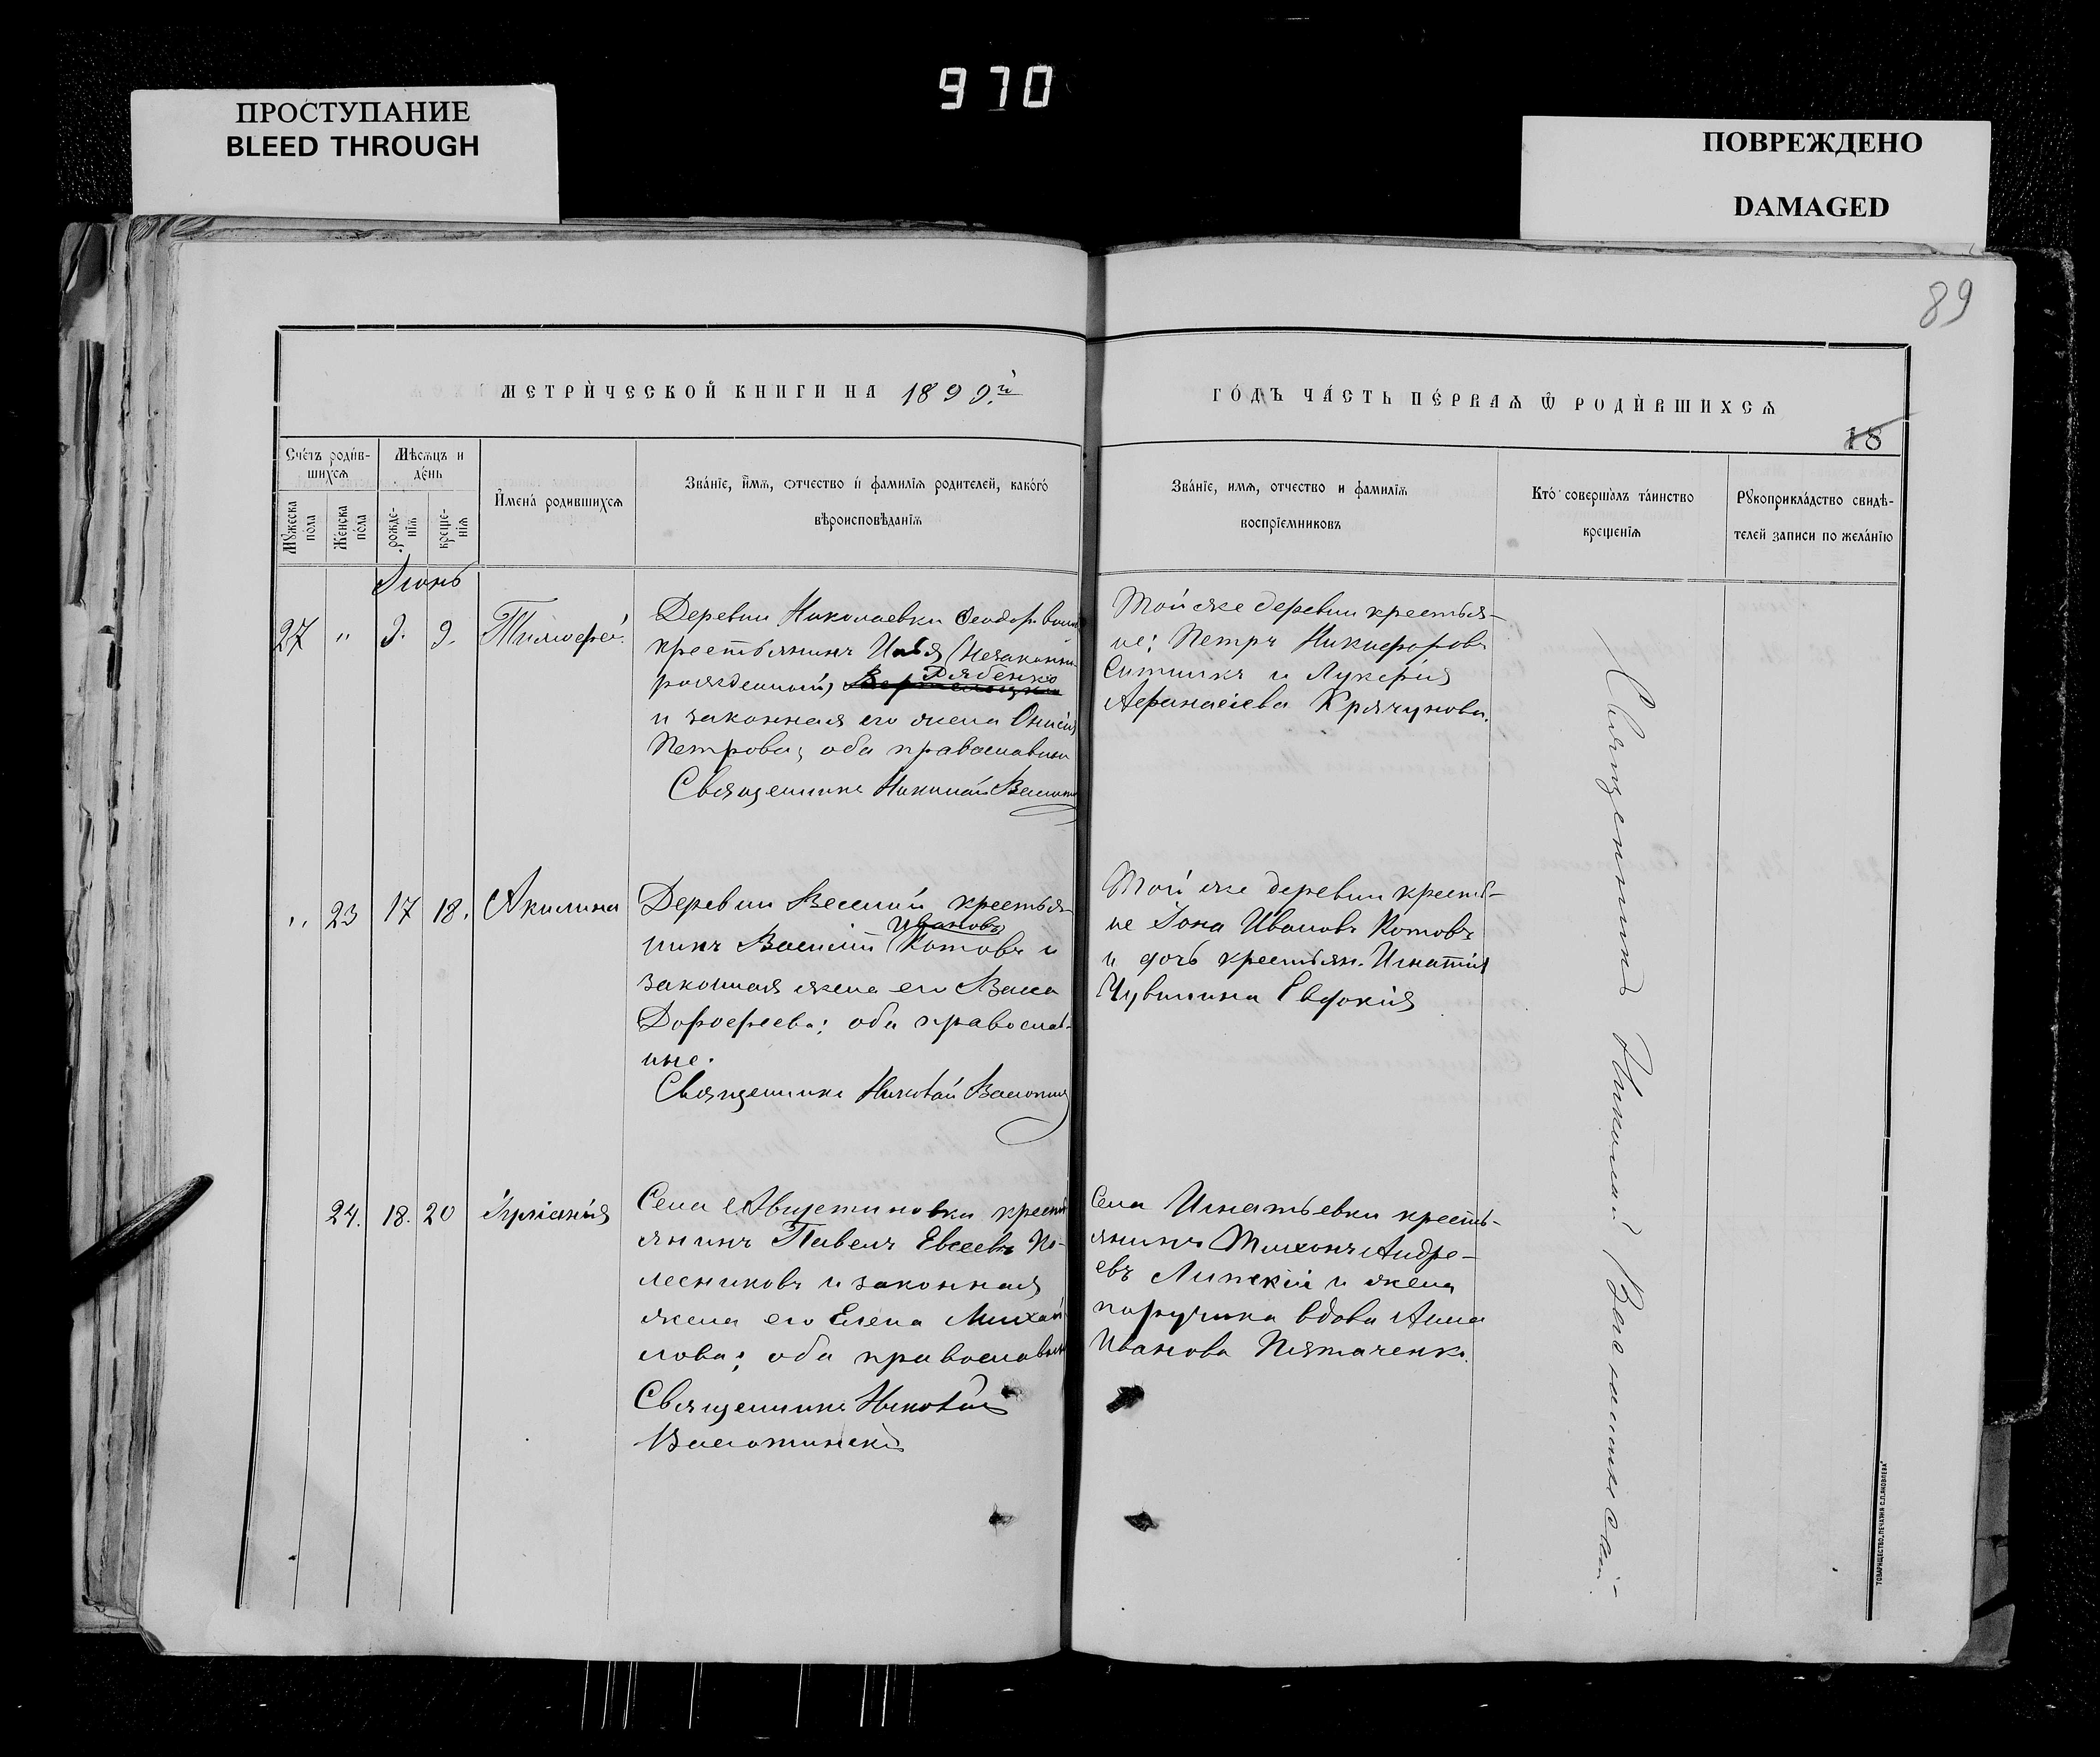 970
ПРОСТУПАНИЕ
BLEED THROUGH
ПОВРЕЖДЕНО
DAMAGED
89
МЕТРИ́ЧЕСКОЙ КНИГИ НА 1899.й
ГО́ДЪ ЧА́СТЬ ПЕ́РВАѦ Ѿ РОДИ́ВШИХСѦ
18
Сче́тъ роди́в-
шихсѧ
Мѣсѧцъ и
де́нь
Мꙋжеска
по́ла
Же́нска
по́ла
рожде-
нїѧ
креще-
нїѧ
Имена́ родившихсѧ
Зва́нїе, имѧ, отчество и фамилїѧ родителей, како́го
вѣроисповѣданїѧ
Зва́нїе, имѧ, отчество и фамилїѧ
воспрїемниковъ
Кто̀ соверша́лъ та́инство
крещенїѧ
Рꙋкоприкла́дство свидѣ-
телей записи по жела́нїю
Іюнь
27 " 9. 9. Тимофей.
Деревни Николаевки
крестьянинъ Илья (Незаконно
рожденный) Рябенко
и законная его жена
Петрова; оба православны
Священникъ Николай
Той же деревни крестья-
не: Петръ Никифоровъ
Ситникъ и Лукерія
Афанасіева
" 23 17 18. Акилина
Деревни Веселой крестья-
Ивановъ
нинъ Василій Котовъ и
законная жена его Васса
Дорофеева; оба православ-
ные.
Священникъ Николай
Той же деревни кресть-
не Іона Ивановъ Котовъ
и дочь крестьян. Игнатія
Чувилина Евдокія
24. 18. 20 Іуліанія
Села Августиновки крестья
янинъ Павелъ Евсеевъ По-
лесниковъ и законная
жена его Елена Михай
лова; оба православны
Священникъ Николай
Села Игнатьевки кресть-
янинъ Тихонъ Андре-
евъ Липскій и жена
поручика вдова Анна
Иванова
Священникъ Николай
ТОВАРИЩЕСТВО „ПЕЧАТНЯ С.П.ЯКОВЛЕВА"